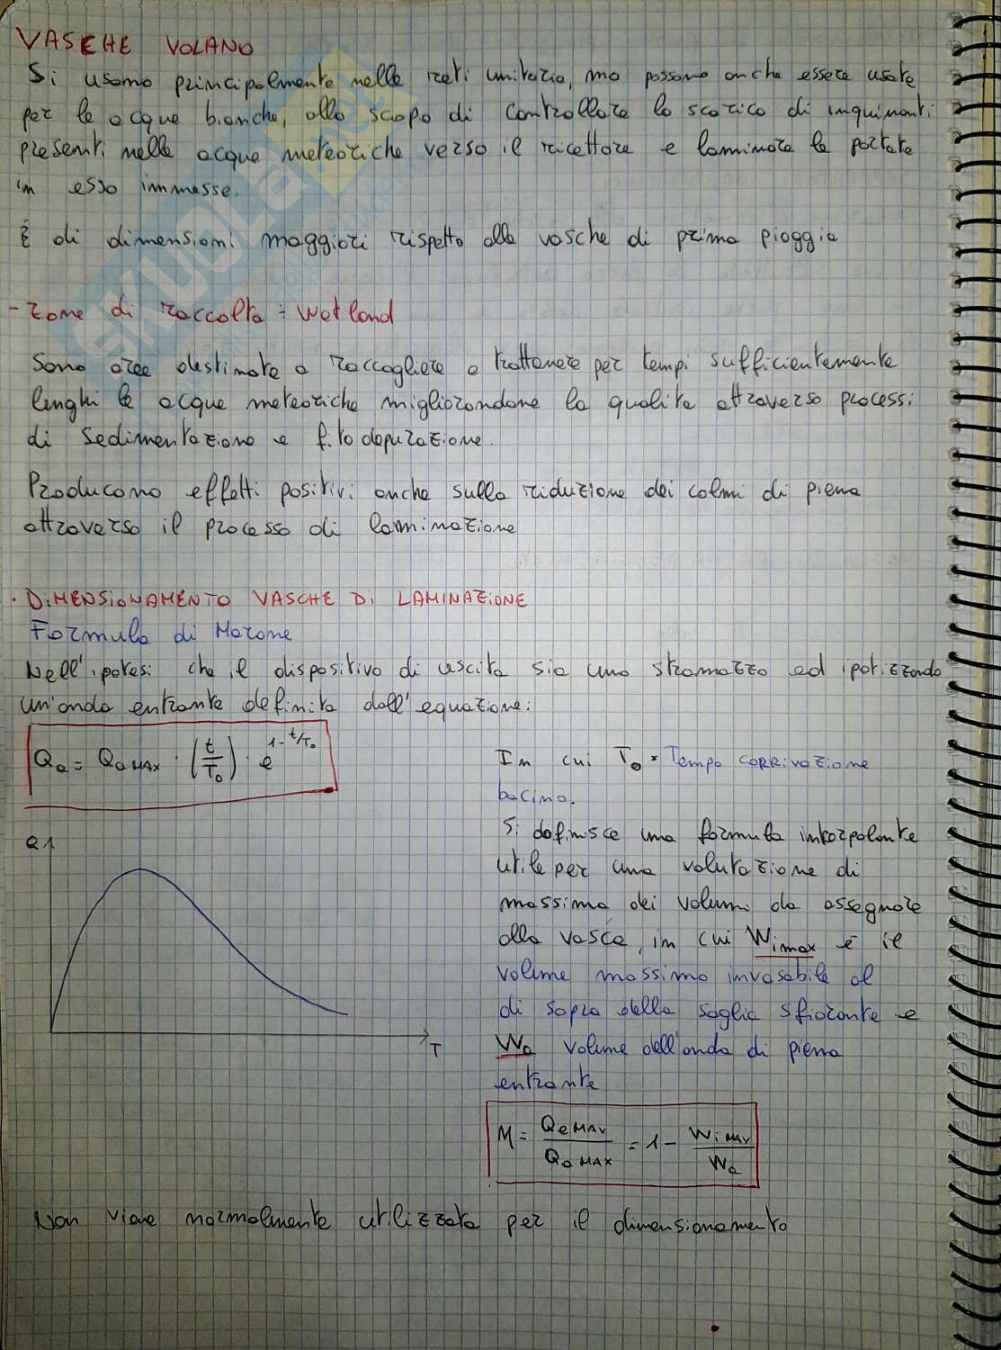 VASCHE VOLANO
Si usano principalmente nelle reti unitarie, ma possono anche essere usate
per le acque bianche, allo scopo di controllare lo scarico di inquinanti
presenti nelle acque meteoriche verso il ricettore e laminare le portate
in esso immesse.
È di dimensioni maggiori rispetto alle vasche di prima pioggia
- zone di raccolta : Wetland
Sono aree destinate a raccogliere e trattenere per tempi sufficientemente
lunghi le acque meteoriche migliorandone la qualita attraverso processi
di sedimentazione e fitodepurazione.
Producono effetti positivi anche sulla riduzione dei colmi di piena
attraverso il processo di laminazione
· DIMENSIONAMENTO VASCHE DI LAMINAZIONE
Formula di Marone
Nell'ipotesi che il dispositivo di uscita sia uno stramazzo ed ipotizzando
un'onda entrante definita dall'equazione:
Qa = Qa MAX · (t/T₀) · e^(1-t/T₀)
In cui T₀ = Tempo CORRIVAZIONE
bacino.
Si definisce una formula interpolante
utile per una valutazione di
massima dei volumi da assegnare
alla vasca, in cui Wimax è il
volume massimo invasabile al
di sopra della soglia sfiorante e
Wa volume dell'onda di piena
entrante
Q
T
M = Qe MAX / Qa MAX = 1 - Wi MAX / Wa
Non viene normalmente utilizzata per il dimensionamento
SKUOLA.net